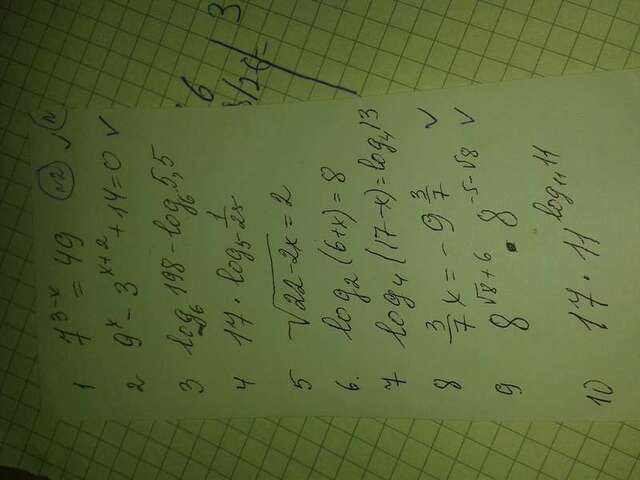 №2
1 7^{3-x} = 49
2 9^x - 3^{x+2} + 14 = 0 ✓
3 log_6 198 - log_6 5,5
4 17 · log_5 \frac{1}{25}
5 \sqrt{22-2x} = 2
6. log_2 (6+x) = 8
7 log_4 (17-x) = log_4 13
8 \frac{3}{7} x = -9 \frac{3}{7} ✓
9 8^{√8+6} · 8^{-5-√8} ✓
10 17 · 11^{log_{11} 11}